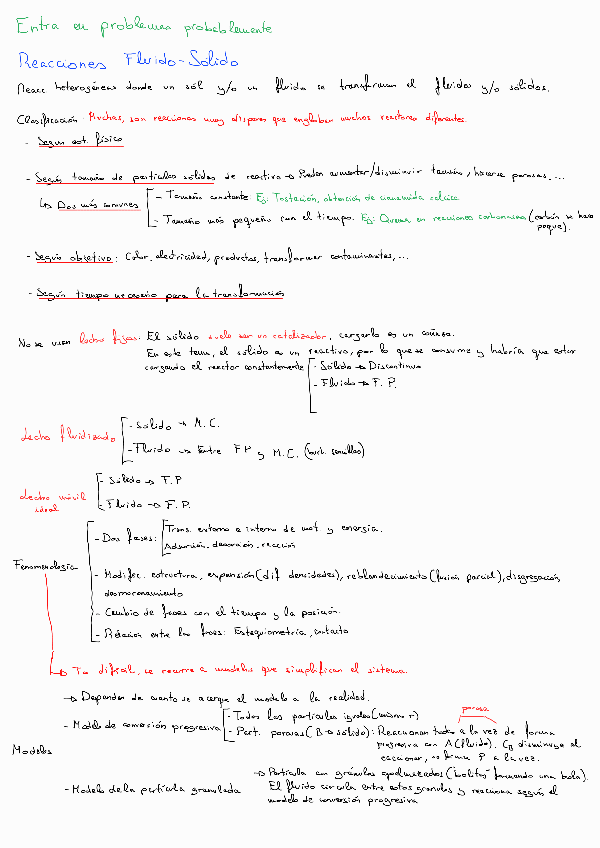 Entra en problemas probablemente
Reacciones Fluido-Sólido
Reacc heterogéneas donde un sól y/o un fluido se transforman el fluidos y/o sólidos.
Clasificación: Muchas, son reacciones muy dispares que engloban muchos reactores diferentes.
- Según est. físico
- Según tamaño de partículas sólidas de reactivo → Pueden aumentar/disminuir tamaño, hacerse porosas, ...
↳ Dos más comunes
- Tamaño constante Ej: Tostación, obtención de cianamida cálcica
- Tamaño más pequeño con el tiempo. Ej: Quema en reacciones (carbón se hace peque).
- Según objetivo: Calor, electricidad, productos, transformar contaminantes, ...
- Según tiempo necesario para la transformación
No se usan lechos fijos: El sólido suele ser un catalizador, cargarlo es un coñazo.
En este tema, el sólido es un reactivo, por lo que se consume y habría que estar
cargando el reactor constantemente
- Sólido → Discontinuo
- Fluido → F. P.
Lecho fluidizado
- Sólido → M.C.
- Fluido → Entre FP y M.C. (sencillos)
Lecho móvil ideal
- Sólido → F.P
- Fluido → F.P.
Fenomenología
- Dos fases: Trans. externo e interno de mat. y energía.
Adsorción, desorción, reacción
- Modific. estructura, expansión (dif densidades), reblandecimiento (fusión parcial), disgregación,
desmoronamiento
- Cambio de fases con el tiempo y la posición.
- Relación entre las fases: Estequiometría, contacto
↳ Tan difícil, se recurre a modelos que simplifican el sistema.
→ Dependen de cuanto se acerque el modelo a la realidad.
Modelos
- Modelo de conversión progresiva
- Todas las partículas iguales (mismo r)
porosa
- Part. porosas (B → sólido): Reaccionan toda a la vez de forma
progresiva con A (fluido). CB disminuye al
reaccionar, se forma P a la vez.
- Modelo de la partícula granulada
→ Partícula con gránulos apelmazados ("bolitas" formando una bola).
El fluido circula entre estos gránulos y reacciona según el
modelo de conversión progresiva